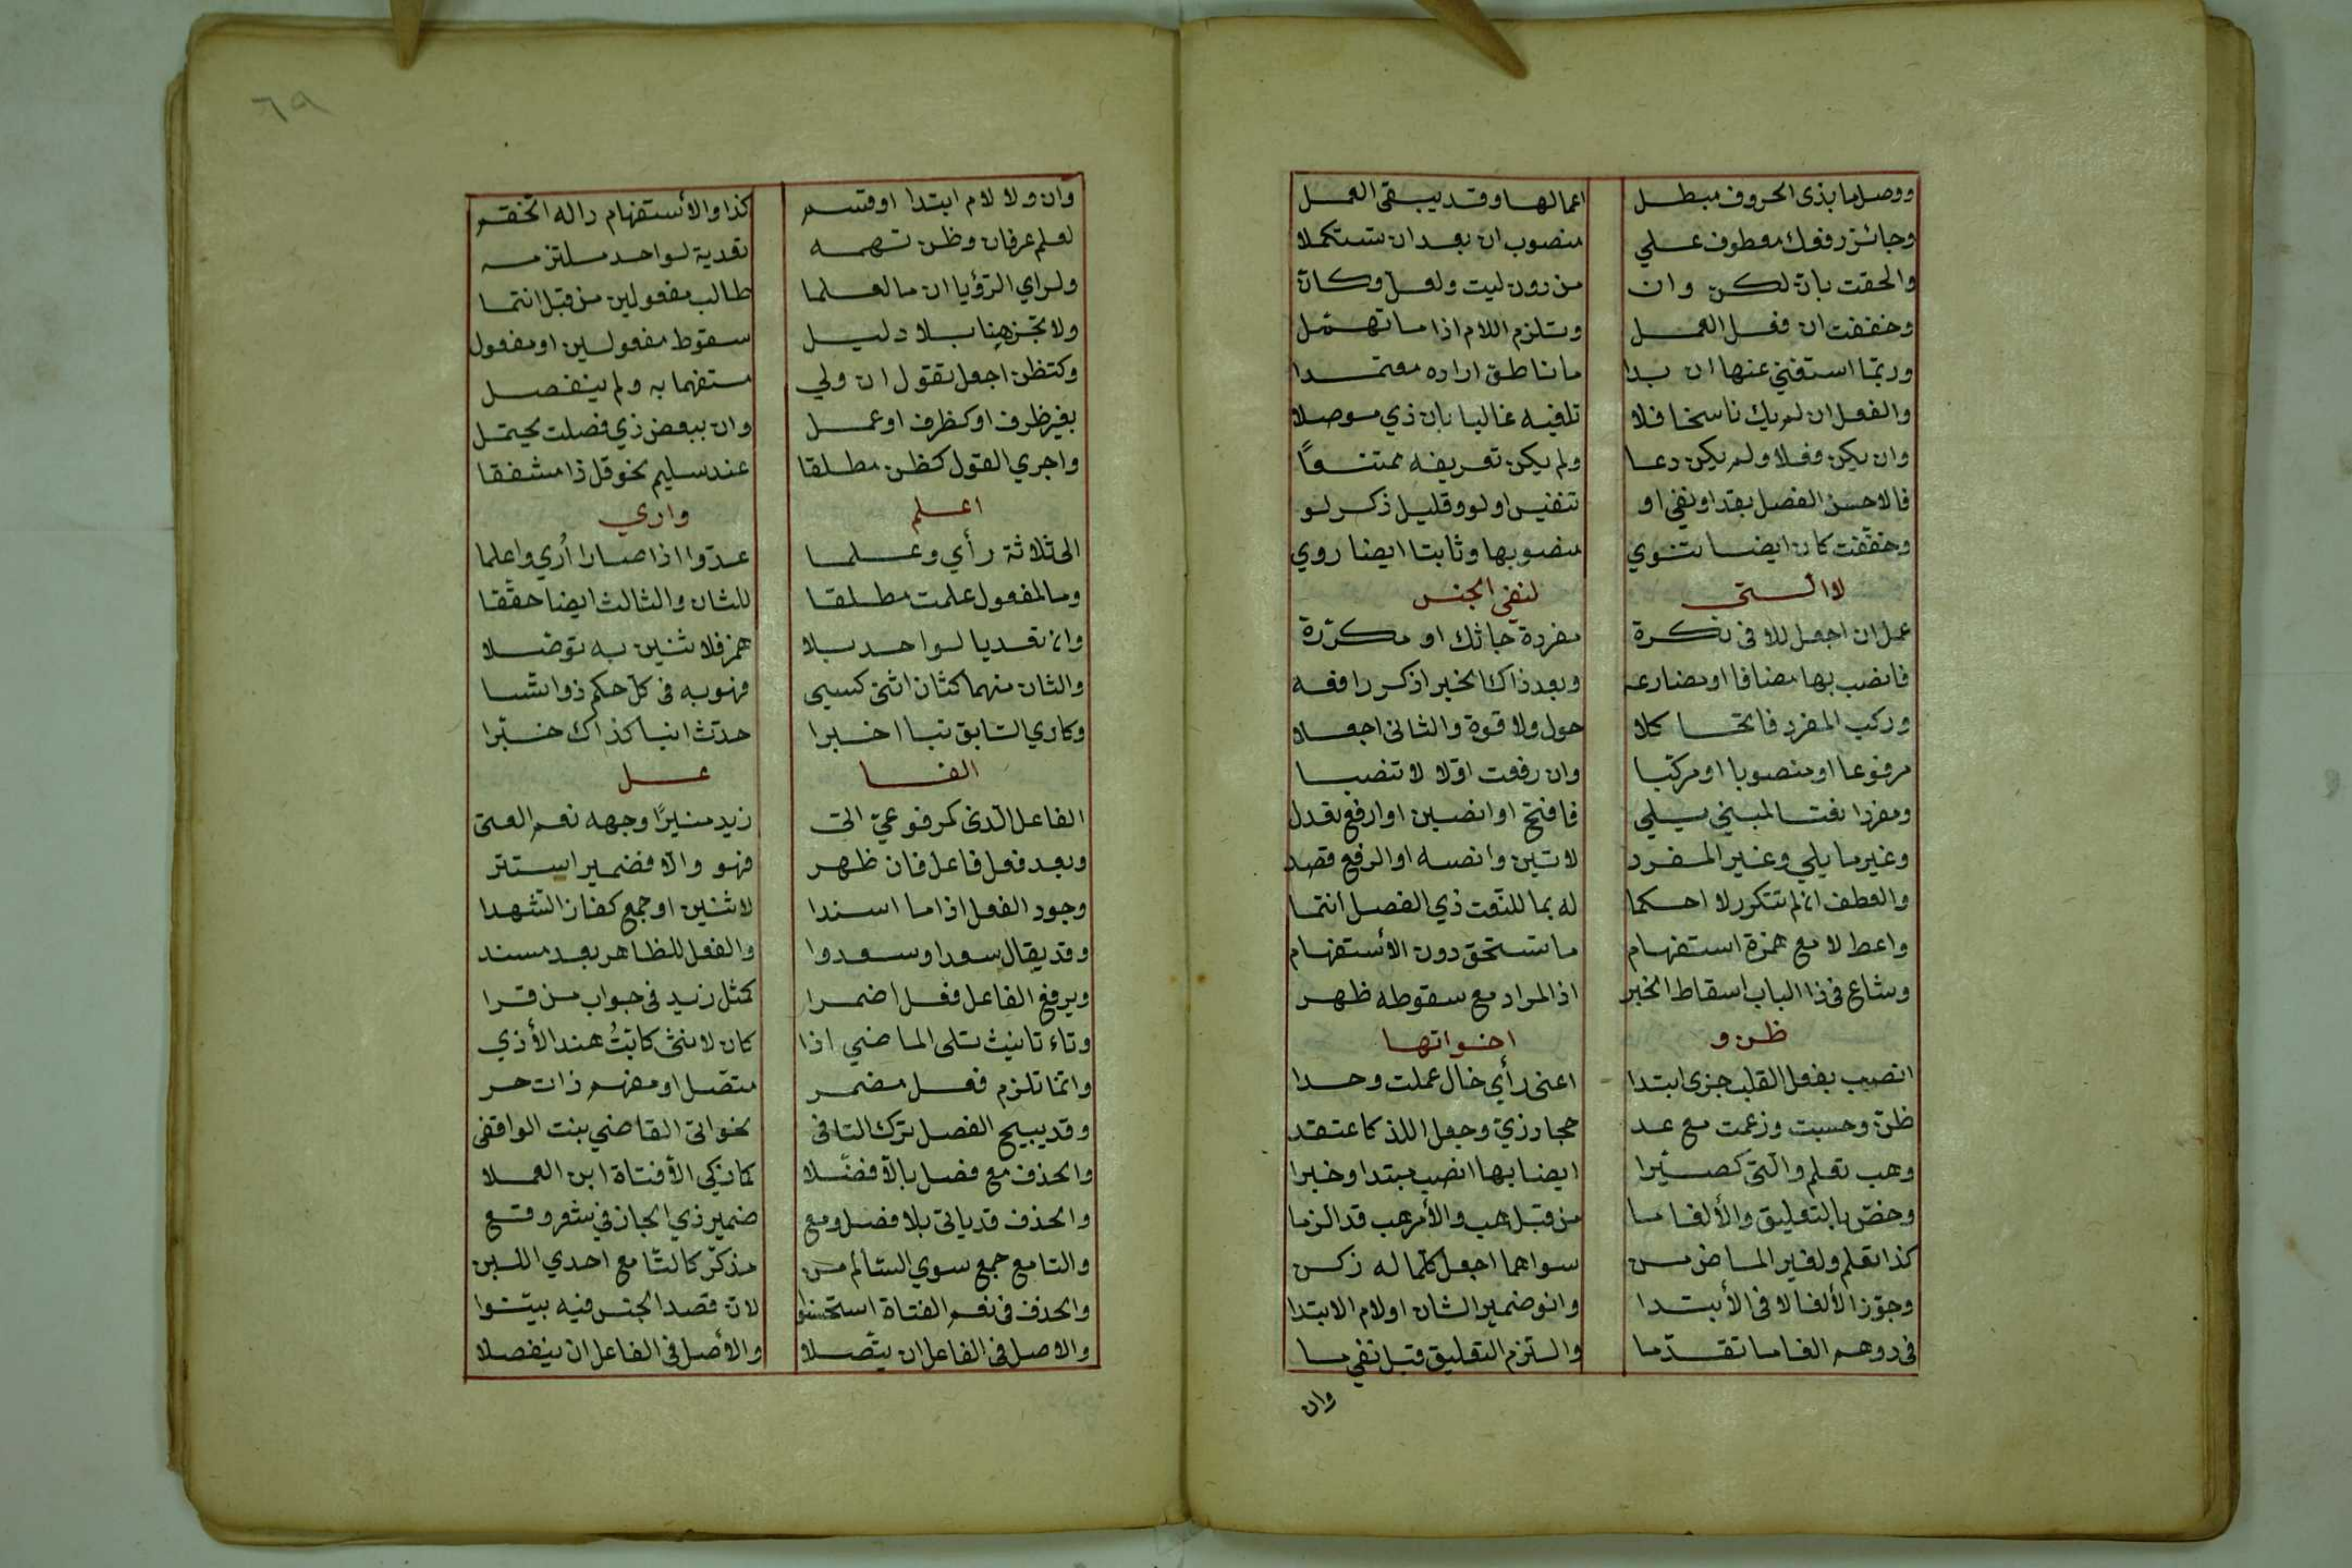 ووصل ما بذى الحروف مبطل اعمالها وقد يبقى العمل
وجائز رفعك معطوف علي منصوب ان بعد ان تستكملا
والحقت بان لكن وان من دون ليت ولعل وكان
وخففت ان فقل العمل وتلزم اللام اذا ما تهمل
وربما استغني عنها ان بدا ما ناطق اراده معتمدا
والفعل ان لم يك ناسخا فلا تلفيه غالبا بان ذي موصلا
وان يكن فعلا ولم يكن دعا ولم يكن تصريفه ممتنعًا
فالاحسن الفصل بقد او نفي او تنفيس او لو وقليل ذكر لو
وخففت كان ايضا تنوي منصوبها وثابتا ايضا روي
لا التي لنفي الجنس
عمل ان اجعل للا في نكرة مفردة جاءتك او مكررة
فانصب بها مضافا او مضارعه وبعد ذاك الخبر اذكر رافعه
وركب المفرد فاتحا كلا حول ولا قوة والثاني اجعلا
مرفوعا او منصوبا او مركبا وان رفعت اولا لا تنصبا
ومفردا نعتا لمبني يلي فافتح او انصبن او ارفع تعدل
وغير ما يلي وغير المفرد لا تبن وانصبه او الرفع قصد
والعطف ان لم تتكرر لا احكما له بما للنعت ذي الفصل انتما
واعط لا مع همزة استفهام ما تستحق دون الأستفهام
وشاع في ذا الباب اسقاط الخبر اذا المراد مع سقوطه ظهر
ظن و اخواتها
انصب بفعل القلب جزى ابتدا اعنى رأي خال عملت وحدا
ظن وحسبت وزعمت مع عد حجا درى وجعل اللذ كاعتقد
وهب تعلم والتي كصيرا ايضا بها انصب مبتدا وخبرا
وخص بالتعليق والألغا ما من قبل هب والأمر هب قد الزما
كذا تعلم ولغير الماض من سواهما اجعل كلما له زكن
وجوز الألغا لا في الأبتدا وانو ضمير الشان او لام الابتدا
في موهم الغا ما تقدما والتزم التعليق قبل نفي ما
وان
٦٩
وان ولا لام ابتدا او قسم كذا والأستفهام ذا له انحتم
لعلم عرفان وظن تهمه تعدية لواحد ملتزمه
ولراي الرؤيا ان ما لعلما طالب مفعولين من قبل انتما
ولا تجز هنا بلا دليل سقوط مفعولين او مفعول
وكتظن اجعل تقول ان ولي مستفهما به ولم ينفصل
بغير ظرف او كظرف او عمل وان ببعض ذي فصلت يحتمل
واجري القول كظن مطلقا عند سليم نحو قل ذا مشفقا
اعلم واري
الى ثلاثة رأي وعلما عدوا اذا صارا أري واعلما
وما لمفعول علمت مطلقا للثان والثالث ايضا حققا
وان تعديا لواحد بلا همز فلاثنين به توصلا
والثان منهما كثان اثني كسي فهو به في كل حكم ذو ائتسا
وكاري السابق نبا اخبرا حدث انبا كذاك خبرا
الفا عل
الفاعل الذى كمرفوعي اتى زيد منيرًا وجهه نعم الفتى
وبعد فعل فاعل فان ظهر فهو والا فضمير استتر
وجرد الفعل اذا ما اسندا لاثنين او جمع كفاز الشهدا
وقد يقال سعدا وسعدوا والفعل للظاهر بعد مسند
ويرفع الفاعل فعل اضمرا كمثل زيد في جواب من قرا
وتاء تانيث تلى الماضي اذا كان لانثى كابتْ هند الأذي
وانما تلزم فعل مضمر متصل او مفهم ذات حر
وقد يبيح الفصل ترك التا في نحو اتى القاضي بنت الواقفى
والحذف مع فصل بالا فضلا كما زكى الا فتاة ابن العلا
والحذف قد ياتى بلا فصل ومع ضمير ذي المجاز في شعر وقع
والتا مع جمع سوي السالم من مذكر كالتا مع احدي اللبن
والحذف في نعم الفتاة استحسنوا لان قصد الجنس فيه بينوا
والاصل في الفاعل ان يتصلا والأصل في الفاعل ان ينفصلا